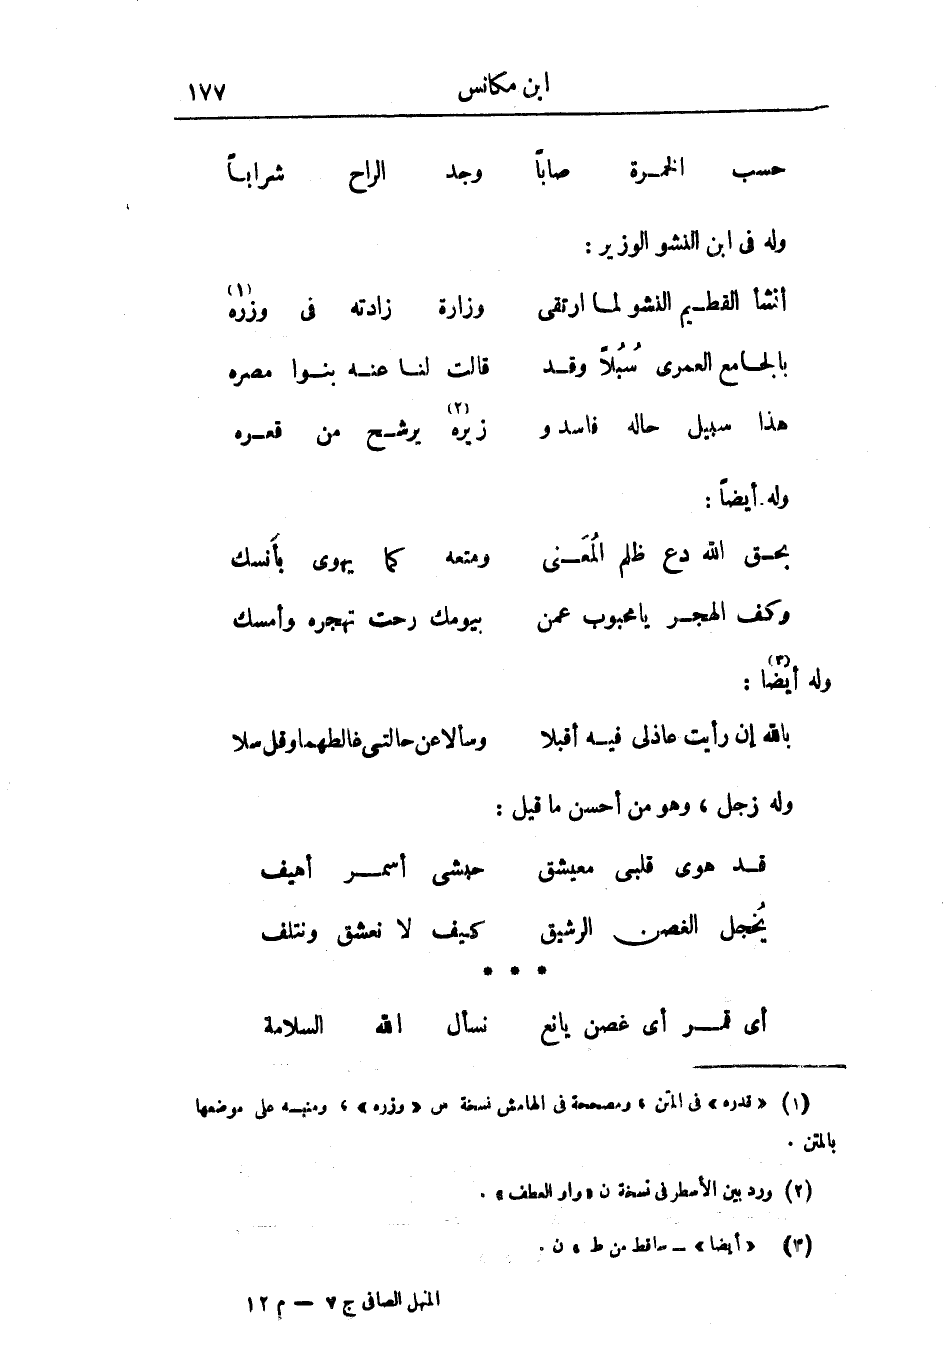 ابن مكانس ١٧٧
حسب الخمرة صاباً وجد الراح شراباً
وله فى ابن النشو الوزير :
أنشأ الفطيم النشو لما ارتقى وزارة زادته فى وزره (١)
بالجامع العمرى سُبُلاً وقد قالت لنا عنه بنوا مصره
هذا سبيل حاله فاسد و زيره (٢) يرشح من قعره
وله أيضاً :
بحق الله دع ظلم المُعَنى ومتعه كما يهوى بأَنسك
وكف الهجر يامحبوب عمن بيومك رحت تهجره وأمسك
وله أيضا (٣) :
بالله إن رأيت عاذلى فيه أقبلا وسألا عن حالتى غالطهما وقل سلا
وله زجل ، وهو من أحسن ما قيل :
قد هوى قلبى معيشق حبشى أسمر أهيف
يُخجل الغصن الرشيق كيف لا نعشق ونتلف
* * *
أى قمر أى غصن يانع نسأل الله السلامة
(١) « قدره » فى المتن ، ومصححة فى الهامش نسخة س « وزره » ، ومنبه على موضعها
بالمتن .
(٢) ورد بين الأسطر فى نسخة ن « واو العطف » .
(٣) « أيضا » ــ ساقط من ط ، ن .
المنهل الصافى ج ٧ — م ١٢